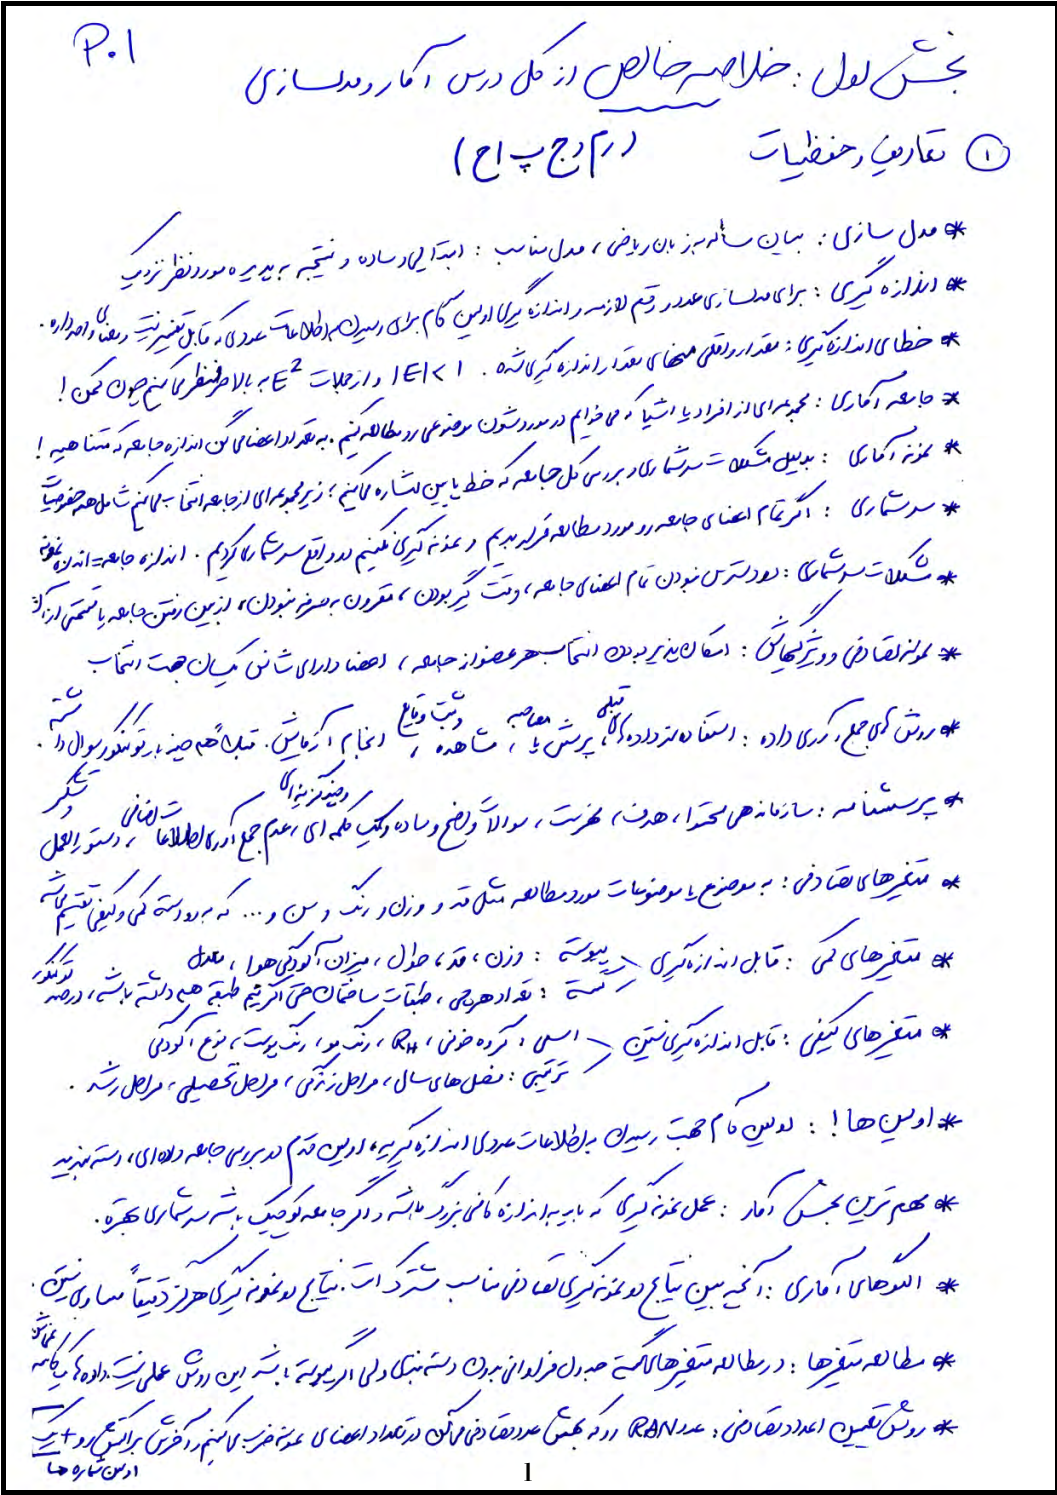 P.1
بخش اول : خلاصه خالص از کل درس آمار و مدلسازی
۱ تعاریف و حفظیات
* مدل سازی : بیان مسأله به زبان ریاضی ، مدل مناسب : ابتدایی و ساده و نتیجه به پدیده مورد نظر نزدیک
* اندازه گیری : برای مدلسازی عدد و رقم لازمه و اندازه گیری اولین گام برای رسیدن به اطلاعات عددی که قابل تغییر نیست و معنای واحد داره .
* خطای اندازه گیری : مقدار واقعی منهای مقدار اندازه گیری شده . |E| < 1 و از جملات E² به بالا صرفنظر می کنیم چون کمن !
* جامعه آماری : مجموعه ای از افراد یا اشیا که می خوایم در موردشون موضوعی رو مطالعه کنیم . به تعداد اعضا می گن اندازه جامعه که متناهیه !
* نمونه آماری : بدلیل مشکلات سرشماری و بررسی کل جامعه که خط پایین اشاره می کنیم ؛ زیر مجموعه ای از جامعه انتخاب می کنیم شامل همه خصوصیات
* سرشماری : اگر تمام اعضای جامعه رو مورد مطالعه قرار بدیم و نمونه گیری نکنیم در واقع سرشماری کردیم . اندازه جامعه = اندازه نمونه
* مشکلات سرشماری : در دسترس نبودن تمام اعضای جامعه ، وقت گیر بودن ، مقرون به صرفه نبودن ، از بین رفتن جامعه یا قسمتی از آن
* نمونه تصادفی و ویژگیهاش : امکان پذیر بودن انتخاب هر عضو از جامعه ، اعضا دارای شانس یکسان جهت انتخاب
* روش های جمع آوری داده : استفاده از داده های قبلی ، پرسش یا مصاحبه ، مشاهده و ثبت وقایع ، انجام آزمایش . قبلاً هم چیز بار تو کنکور سوال داشته .
* پرسشنامه : سازماندهی محتوا ، هدف ، فهرست ، سوالات واضح و ساده و تک کلمه ای و چند گزینه ای ، عدم جمع آوری اطلاعات اضافی ، دستور العمل و تشکر
* متغیرهای تصادفی : به موضوع یا موضوعات مورد مطالعه مثل قد و وزن و رنگ و سن و ... که به دو دسته کمی و کیفی تقسیم می شه
* متغیرهای کمی : قابل اندازه گیری پیوسته : وزن ، قد ، طول ، میزان آلودگی هوا ، معدل
گسسته : تعداد هرچی ، طبقات ساختمان حتی اگر نیم طبقه هم داشته باشه ، درصد کنکور
* متغیرهای کیفی : قابل اندازه گیری نیستن اسمی : گروه خونی ، RH ، رنگ مو ، رنگ پوست ، نوع آلودگی
ترتیبی : فصل های سال ، مراحل زندگی ، مراحل تحصیلی ، مراحل رشد .
* اولین ها ! : اولین گام جهت رسیدن به اطلاعات عددی اندازه گیریه ، اولین قدم در بررسی جامعه داده ای ، دسته بندیه
* مهم ترین بخش آمار : عمل نمونه گیری که باید به اندازه کافی بزرگ باشه و اگر جامعه کوچیک باشه سرشماری بهتره .
* الگوهای آماری : آنچه بین نتایج دو نمونه گیری تصادفی مناسب مشترک است . نتایج دو نمونه گیری هرگز دقیقاً مساوی نیستن .
* مطالعه متغیرها : در مطالعه متغیرهای گسسته جدول فراوانی بدون دسته بندی ولی اگر پیوسته باشه این روش عملی نیست
* روش تعیین اعداد تصادفی : عدد RAN رو که بهش عدد تصادفی می گن در تعداد اعضای نمونه ضرب می کنیم و آخرش براکتش رو + یک
اولین شماره ها
1